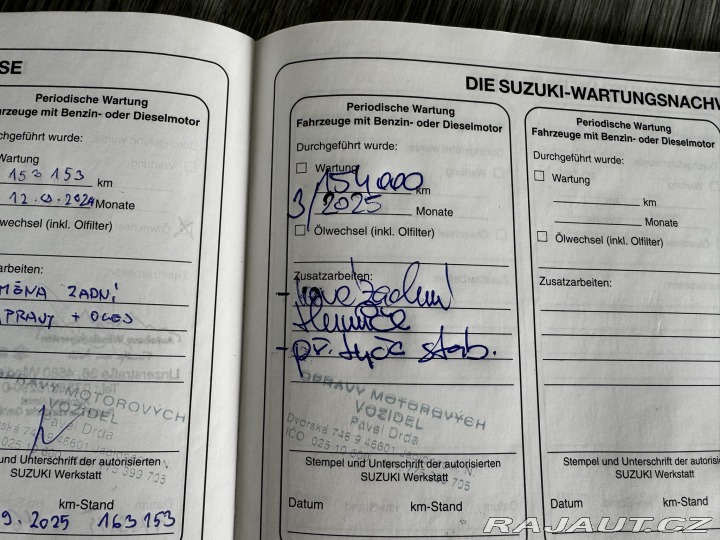 SE
Periodische Wartung
hrzeuge mit Benzin- oder Dieselmotor
rchgeführt wurde:
Wartung
153 153 km
12.0.2024 Monate
lwechsel (inkl. Olfilter)
arbeiten:
MĚNA ZADNÍ
PRAVY + OLEJ
AVY MOTOROVÝCH
VOZIDEL
Pavel Drda
und Unterschrift der autorisierten
SUZUKI Werkstatt
km-Stand
9. 2025 163 153
DIE SUZUKI-WARTUNGSNACHW
Periodische Wartung
Fahrzeuge mit Benzin- oder Dieselmotor
Durchgeführt wurde:
Wartung
154 000 km
3/2025 Monate
Ölwechsel (inkl. Olfilter)
Zusatzarbeiten:
- Nové zadní
tlumiče
- př. tyče stab.
OPRAVY MOTOROVÝCH
VOZIDEL
Pavel Drda
Dvorská 745 9 46601
Stempel und Unterschrift der autorisierten
SUZUKI Werkstatt
Datum km-Stand
Periodische Wartung
Fahrzeuge mit Benzin- oder Dieselmotor
Durchgeführt wurde:
Wartung
km
Monate
Ölwechsel (inkl. Olfilter)
Zusatzarbeiten:
Stempel und Unterschrift der autorisierten
SUZUKI Werkstatt
Datum km-Stand
RAJAUT.CZ